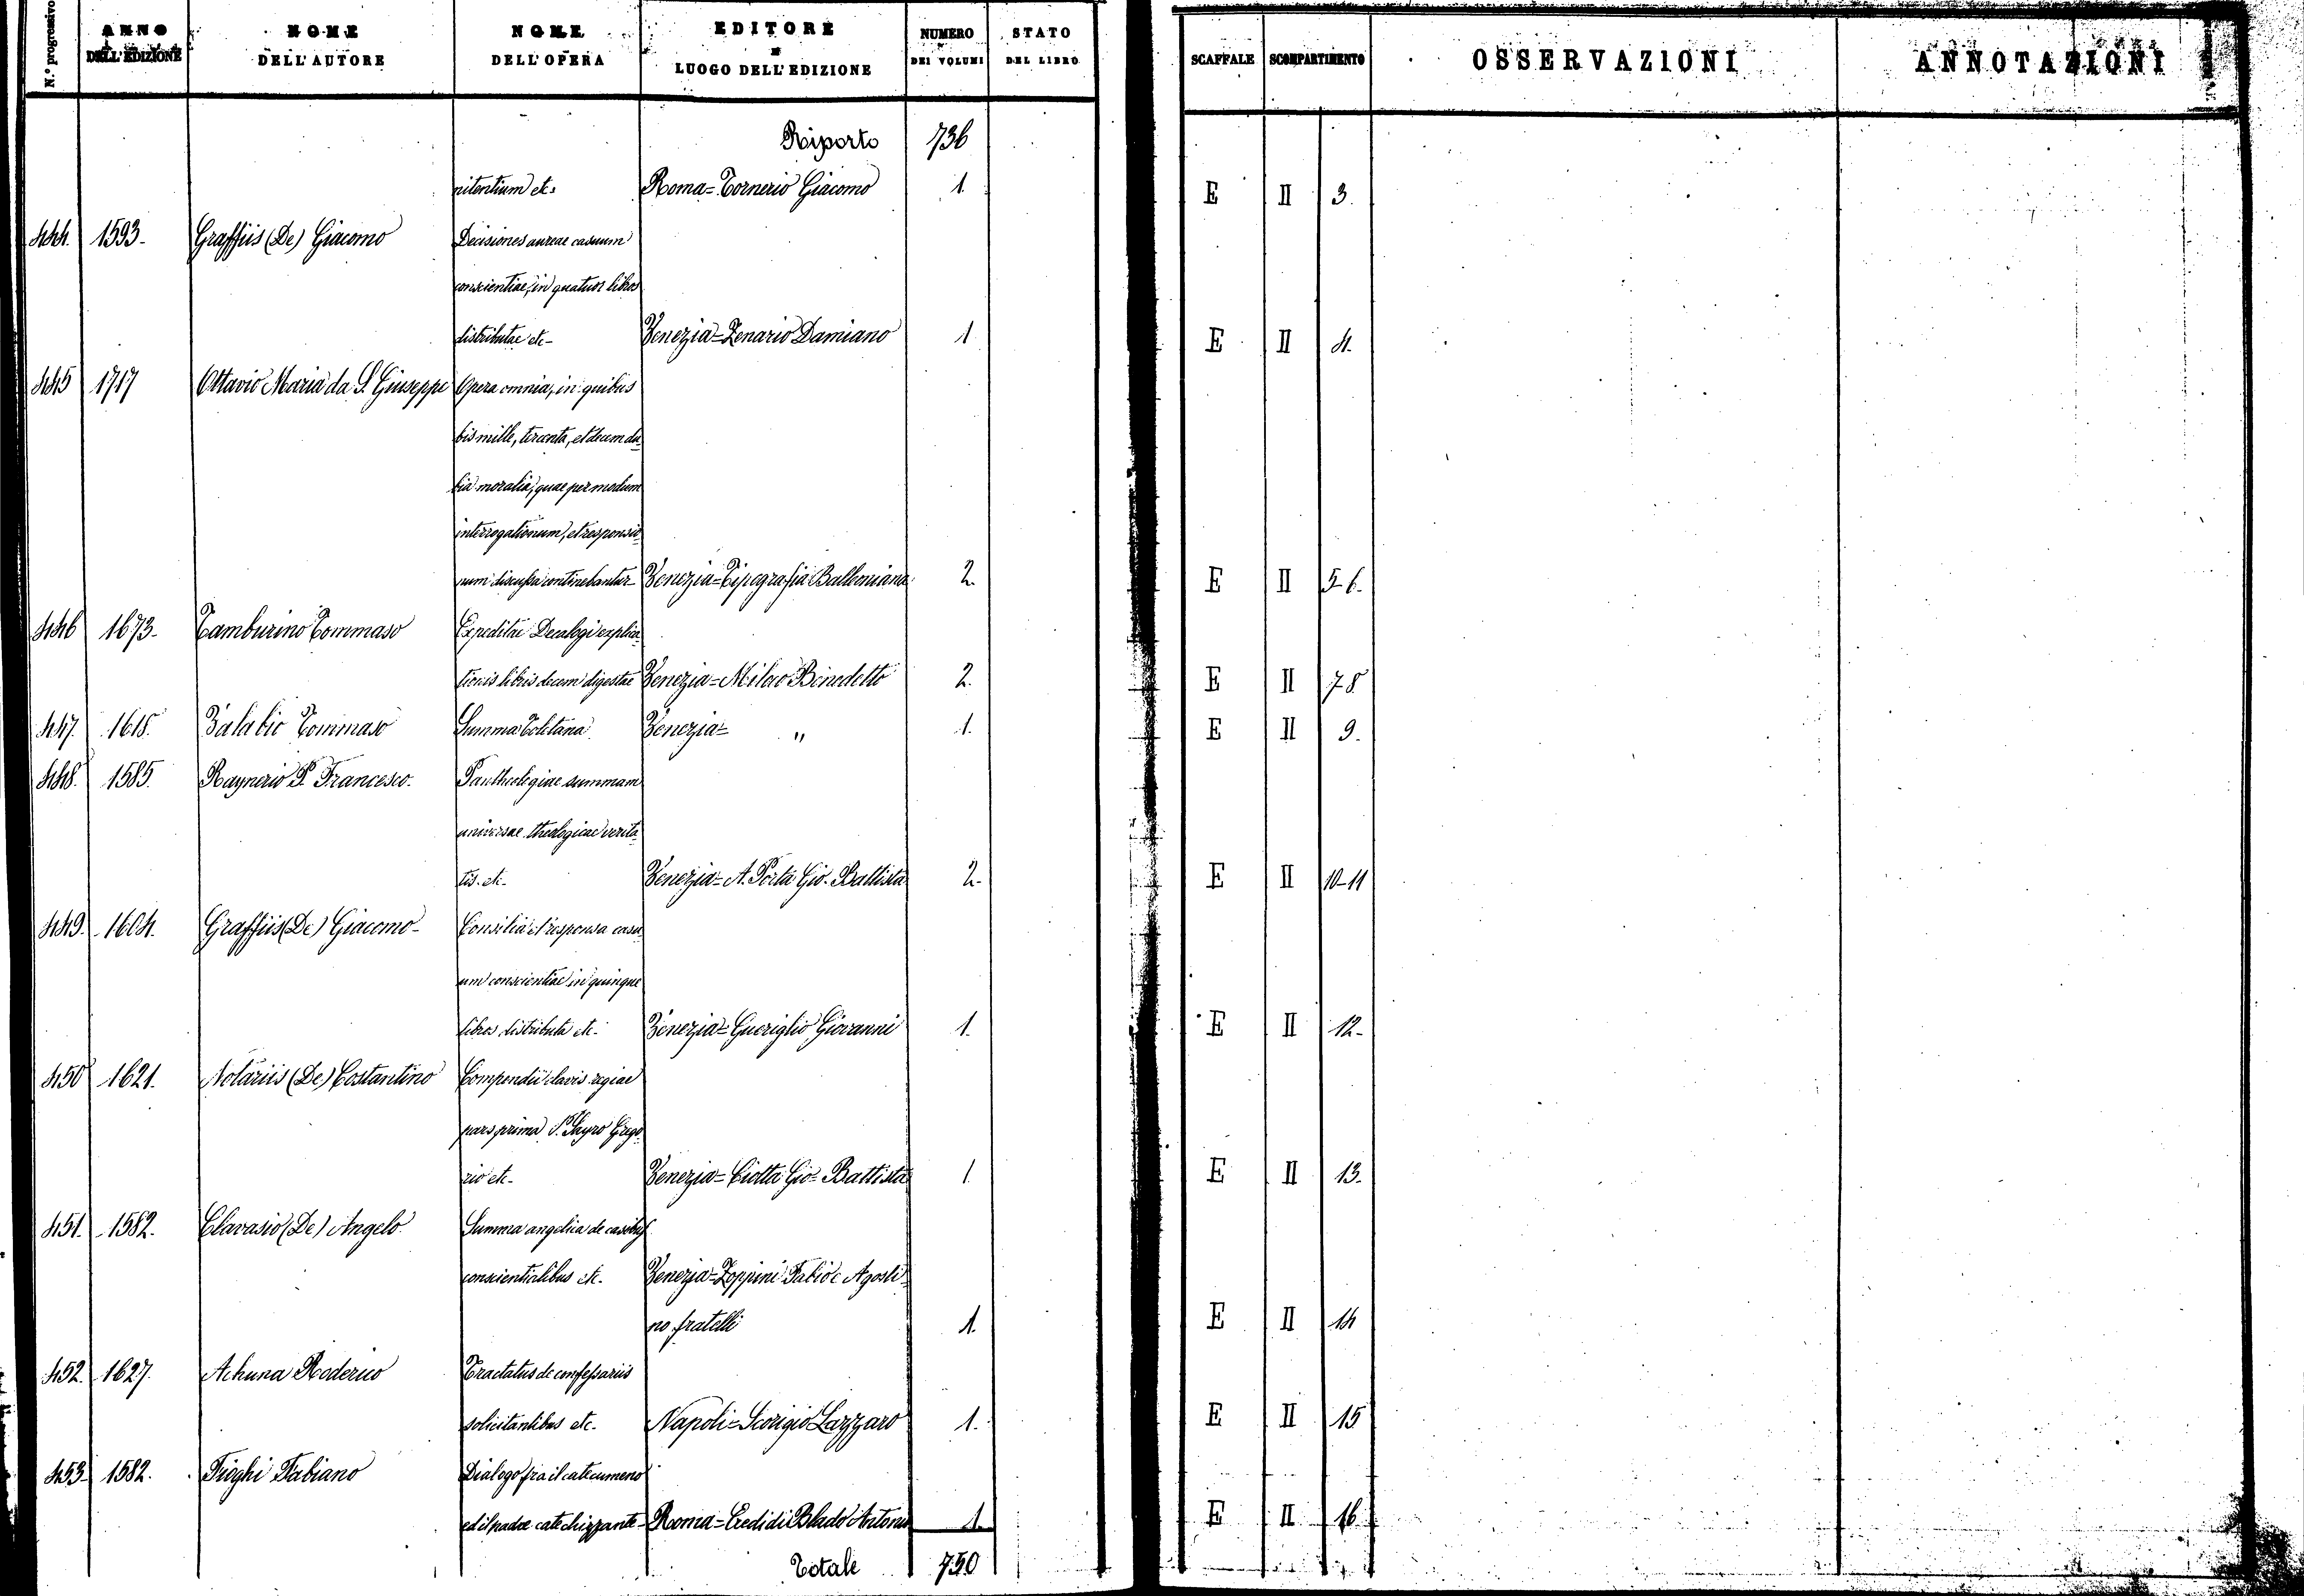 N.º progressivo ANNO DELL'EDIZIONE NOME DELL'AUTORE NOME DELL'OPERA EDITORE E LUOGO DELL'EDIZIONE NUMERO DEI VOLUMI STATO DEL LIBRO SCAFFALE SCOMPARTIMENTO OSSERVAZIONI ANNOTAZIONI
Riporto 736
nitentium etc. Roma = Tornerio Giacomo 1 E II 3.
444. 1593. Graffiis (De) Giacomo Decisiones aureae casuum
conscientiae, in quatuor libros
distributae etc. Venezia = Zenario Damiano 1 E II 4.
445 1717 Ottavio Maria da S. Giuseppe Opera omnia, in quibus
bis mille, tercenta, et decem du-
bia moralia, quae per modum
interrogationum, et responsio-
num discussa continebantur Venezia = Tipografia Balleoniana 2. E II 5-6.
446 1673. Tamburino Tommaso Expeditae Decalogi explica-
tionis libris decem digestae Venezia = Miloco Benedetto 2. E II 7-8
447. 1618. Zalabio Tommaso Summa Toletana Venezia = " 1. E II 9.
448. 1585. Raynerio P. Francesco. Pantheologiae summam
universae theologicae verita-
tis etc. Venezia = A. Porta Gio. Battista 2. E II 10-11
449. 1604. Graffiis (De) Giacomo Consilia et responsa casu-
um conscientiae in quinque
libros distributa etc. Venezia = Gueriglio Giovanni 1. E II 12.
450 1621. Notariis (De) Costantino Compendii clavis regiae
pars prima P. Sayro Grego-
rio etc. Venezia = Ciotta Gio. Battista 1 E II 13.
451. 1582. Clavasio (De) Angelo Summa angelica de casibus
conscientialibus etc. Venezia = Zoppini Fabio e Agosti-
no fratelli 1. E II 14
452. 1627. Achuna Roderico Tractatus de confessariis
solicitantibus etc. Napoli = Scorigio Lazzaro 1. E II 15
453. 1582. Fioghi Fabiano Dialogo fra il catecumeno
ed il padre catechizzante Roma = Eredi di Blado Antonio 1. E II 16
Totale 750